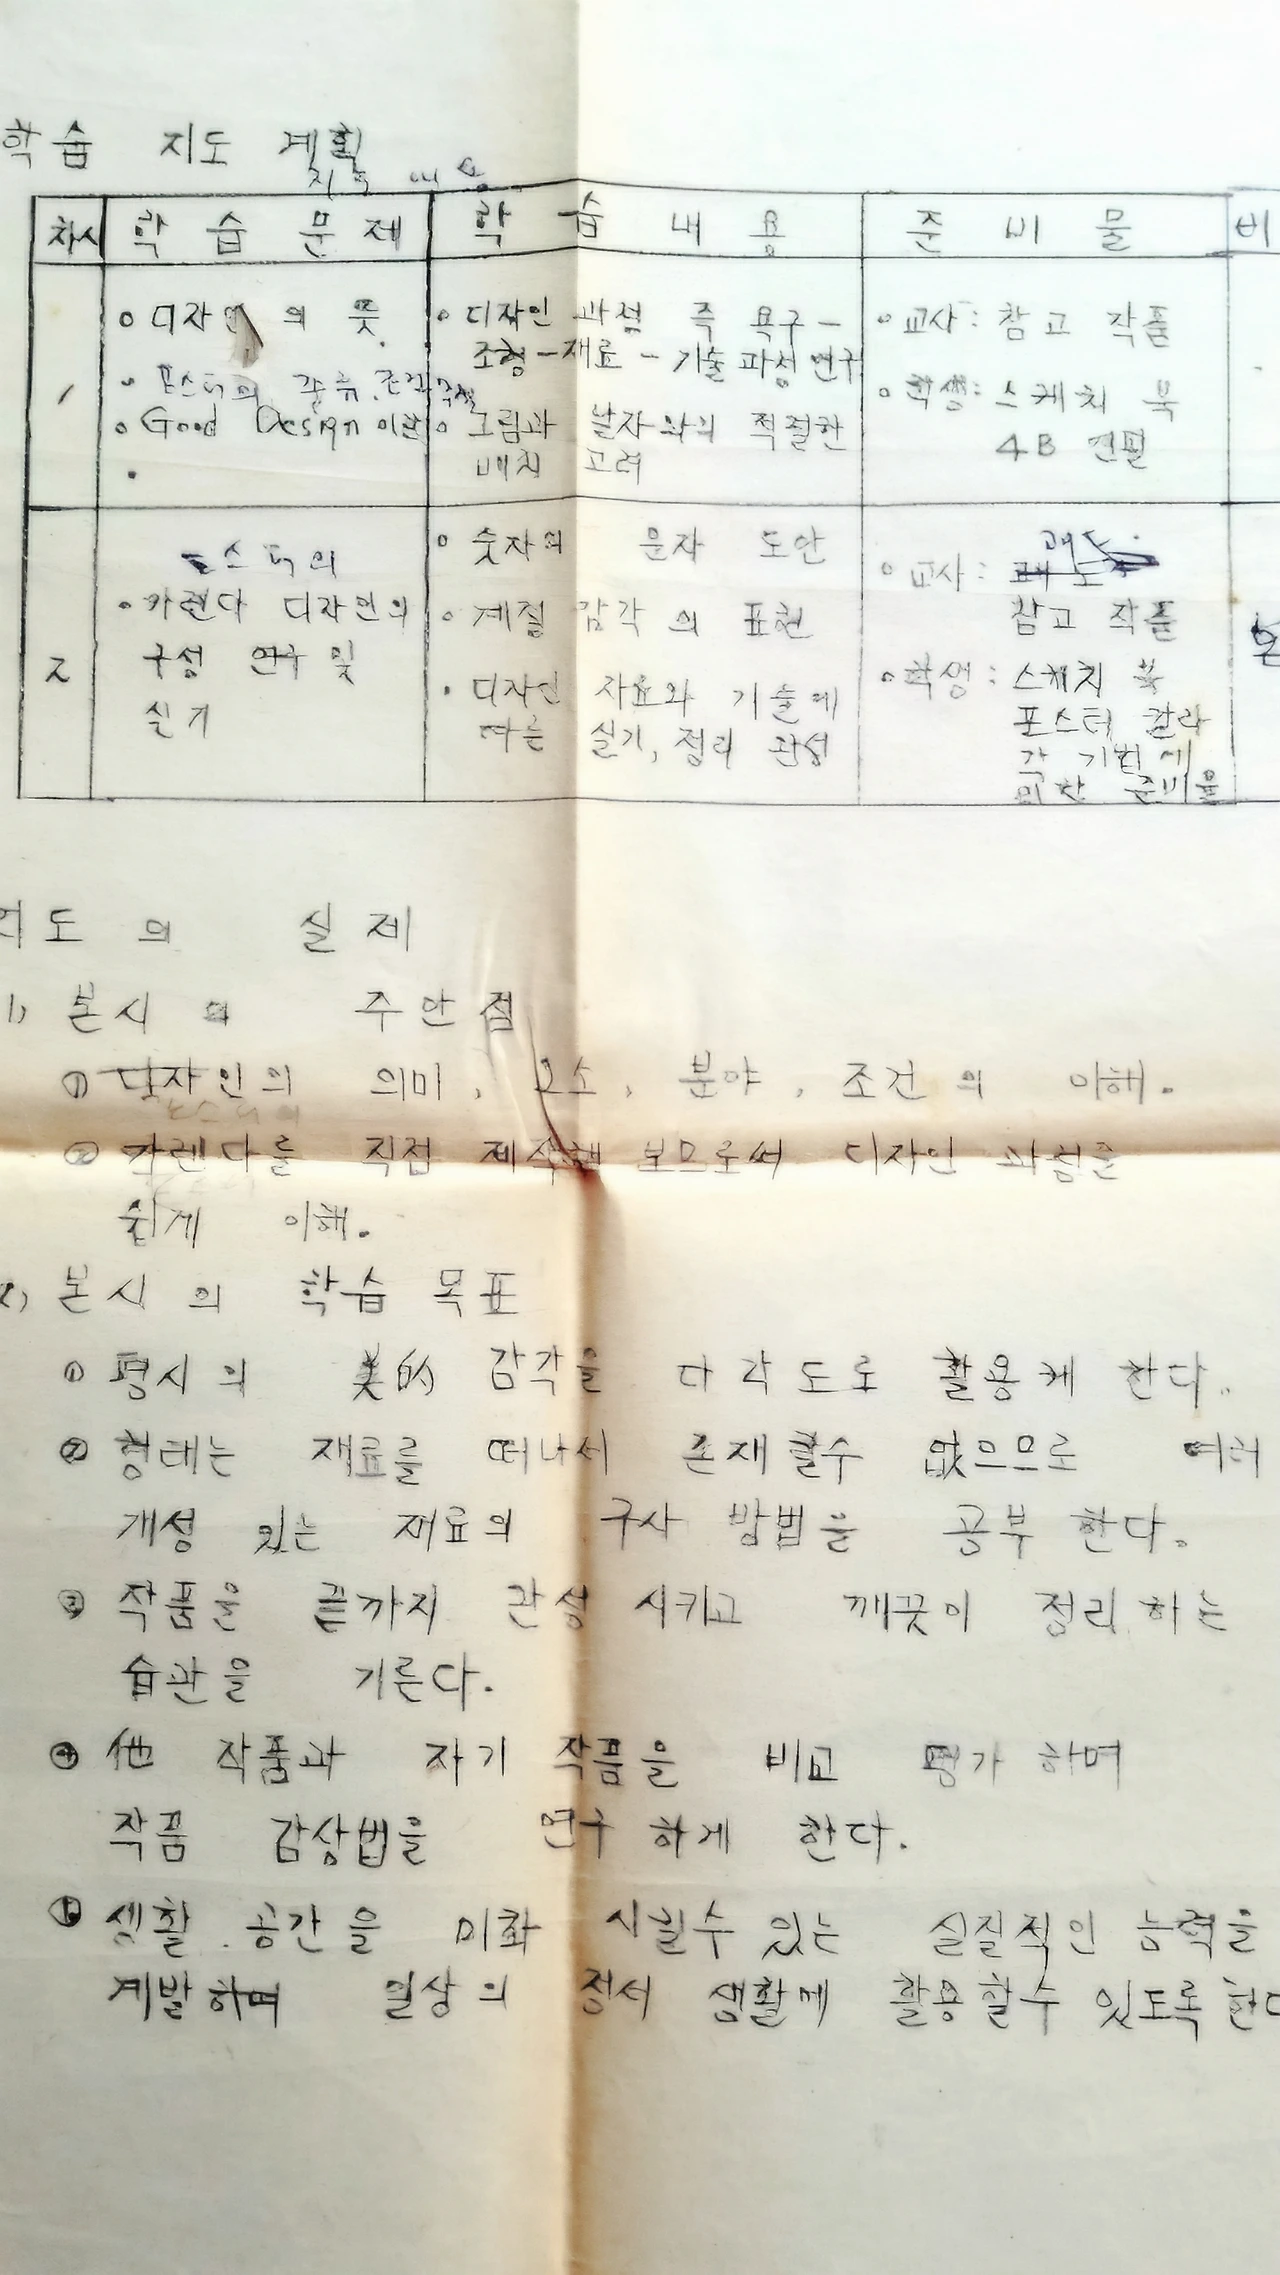 학습 지도 계획
지도 내용
차시 학습문제 학습내용 준비물 비
1
○ 디자인의 뜻.
○ 포스터의 종류, 조건
○ Good Design 이란
○ 디자인 과정 즉 욕구-
조형-재료-기술 과정 연구
○ 그림과 날자와의 적절한
배치 고려
○ 교사: 참고 작품
○ 학생: 스케치 북
4B 연필
2
포스터의
○ 카렌다 디자인의
구성 연구 및
실기
○ 숫자의 문자 도안
○ 계절 감각의 표현
○ 디자인 자료와 기술에
따른 실기, 정리 완성
괘도.
○ 교사: 괘도
참고 작품
○ 학생: 스케치 북
포스터 칼라
각 기법에
의한 준비물
지도의 실제
1) 본시의 주안점
① 디자인의 의미, 요소, 분야, 조건의 이해.
포스터를
② 카렌다를 직접 제작해 보므로서 디자인 과정을
쉽게 이해.
2) 본시의 학습 목표
① 평시의 美的 감각을 다각도로 활용케 한다.
② 형태는 재료를 떠나서 존재할수 없으므로 여러
개성 있는 재료의 구사 방법을 공부 한다.
③ 작품을 끝까지 완성 시키고 깨끗이 정리하는
습관을 기른다.
④ 他 작품과 자기 작품을 비교 평가 하며
작품 감상법을 연구 하게 한다.
⑤ 생활 공간을 미화 시킬수 있는 실질적인 능력을
계발하며 일상의 정서 생활에 활용할수 있도록 한다